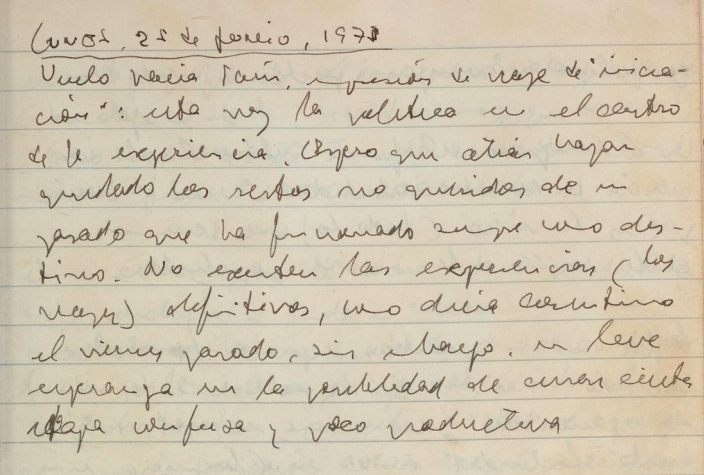 Lunes, 22 de febrero, 1973
Vuelo hacia París, impresión de viaje de "inicia-
ción": esta vez la política en el centro
de la experiencia. Espero que atrás hayan
quedado los restos no queridos de un
pasado que ha funcionado siempre como des-
tino. No existen las experiencias (los
viajes) definitivos, como decía Constantino
el viernes pasado, sin embargo, un leve
esperanza en la posibilidad de cerrar cierta
etapa confusa y poco productiva